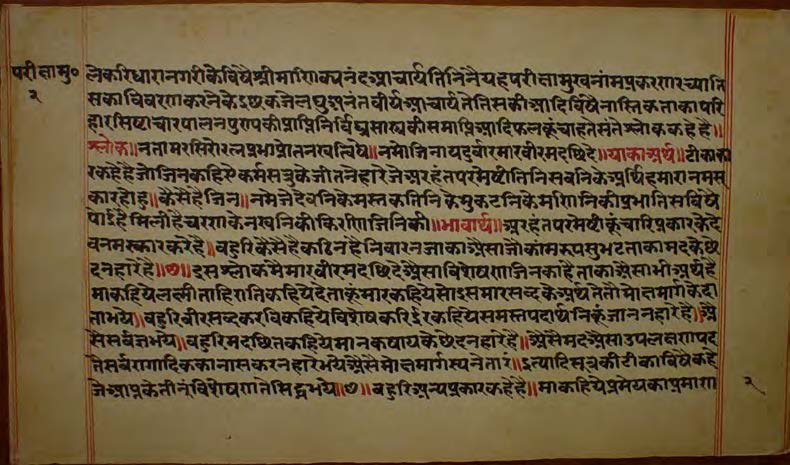 परीक्षामु०
२
लेकरि धारानगरीकेविषैश्रीमाणिक्यनंदआचार्यतिनिंनैयहपरीक्षामुखनांमप्रकरणरच्याति
सकाविवरणकरनेकेइछकजेलघुअनंतवीर्यआचार्यतेतिसकीआदिविषैनास्तिकताकापरि
हारसिष्टाचारपालनपुण्यकीप्राप्तिनिर्विघ्नसास्त्रकीसमाप्तिआदिफलकूंचाहतेसंतेश्लोककहेहै॥
श्लोक॥नतामरसिरोरत्नप्रभाप्रोतनखत्विषे॥नमोजिनायदुर्वारमारवीरमदछिदे॥याकाअर्थ॥टीकाका
रकहैहैजोजिनकहिएकर्मसत्रुकेजीतनहारेजेअरहंतपरमेष्टीतिनिसबनिकेअर्थिहमारानमस्
कारहोहु॥कैसेहैजिन॥नमेजेदेवनिकेमस्तकतिनिकेमुकटनिकेमणिनिकीप्रभातिसविषै
पोईहैमिलीहैचरणकेनखनिकीकिरणिजिनिकी॥भावार्थ॥अरहंतपरमेष्टीकूंचारिप्रकारकेदे
वनमस्कारकरेहै॥बहुरिकैसेहैकठिनहैनिवारनजाकाऐसाजोकांमरूपसुभटताकामदकेछे
दनहारेहै॥७॥इसश्लोकमैमारवीरमदछिदेऐसाविशेषणजिनकाहैताकाऐसाभीअर्थहै
माकहियेलक्ष्मीताहिरातिकहियेदेताकूंमारकहियेसोइसमारसब्दकेअर्थतेतौमोक्षमार्गकेदा
ताभये॥बहुरिवीरसब्दकरविकहियेविशेषकरिईरकहियेसमस्तपदार्थनिकूंजाननहारेहै॥ऐ
सेसर्वज्ञभये॥बहुरिमदछितकहियेमानकषायकेछेदनहारेहै॥ऐसैमदऐसाउपलक्षणपद
तेसर्वरागादिककानासकरनहारेभयेऐसैमोक्षमार्गस्यनेतारं॥इत्यादिसूत्रकीटीकाविषैकहे
जेआप्तकेतीनंविशेषणतेसिद्धभये॥७॥बहुरिअन्यप्रकारकहेहै॥माकहियेप्रमेयकाप्रमाण
२